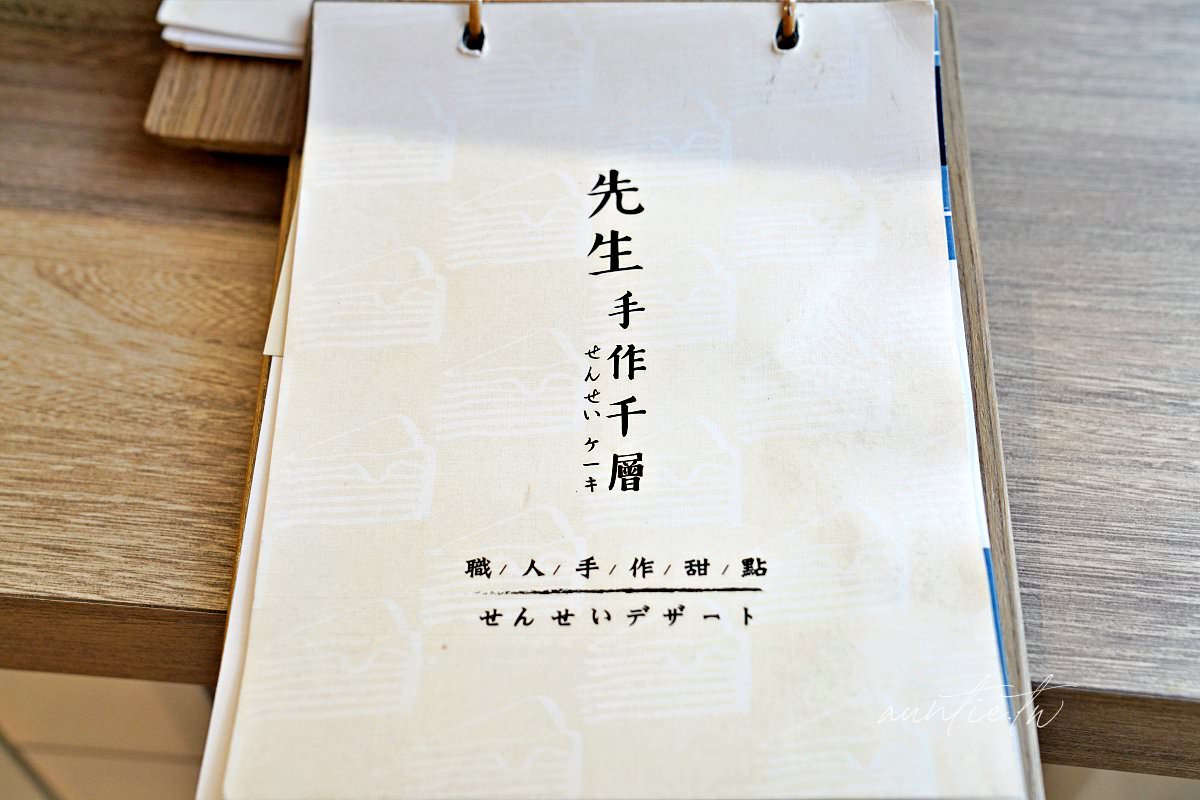 先生手作千層
せんせいケーキ
職/人/手/作/甜/點
せんせいデザート
auntie.tw